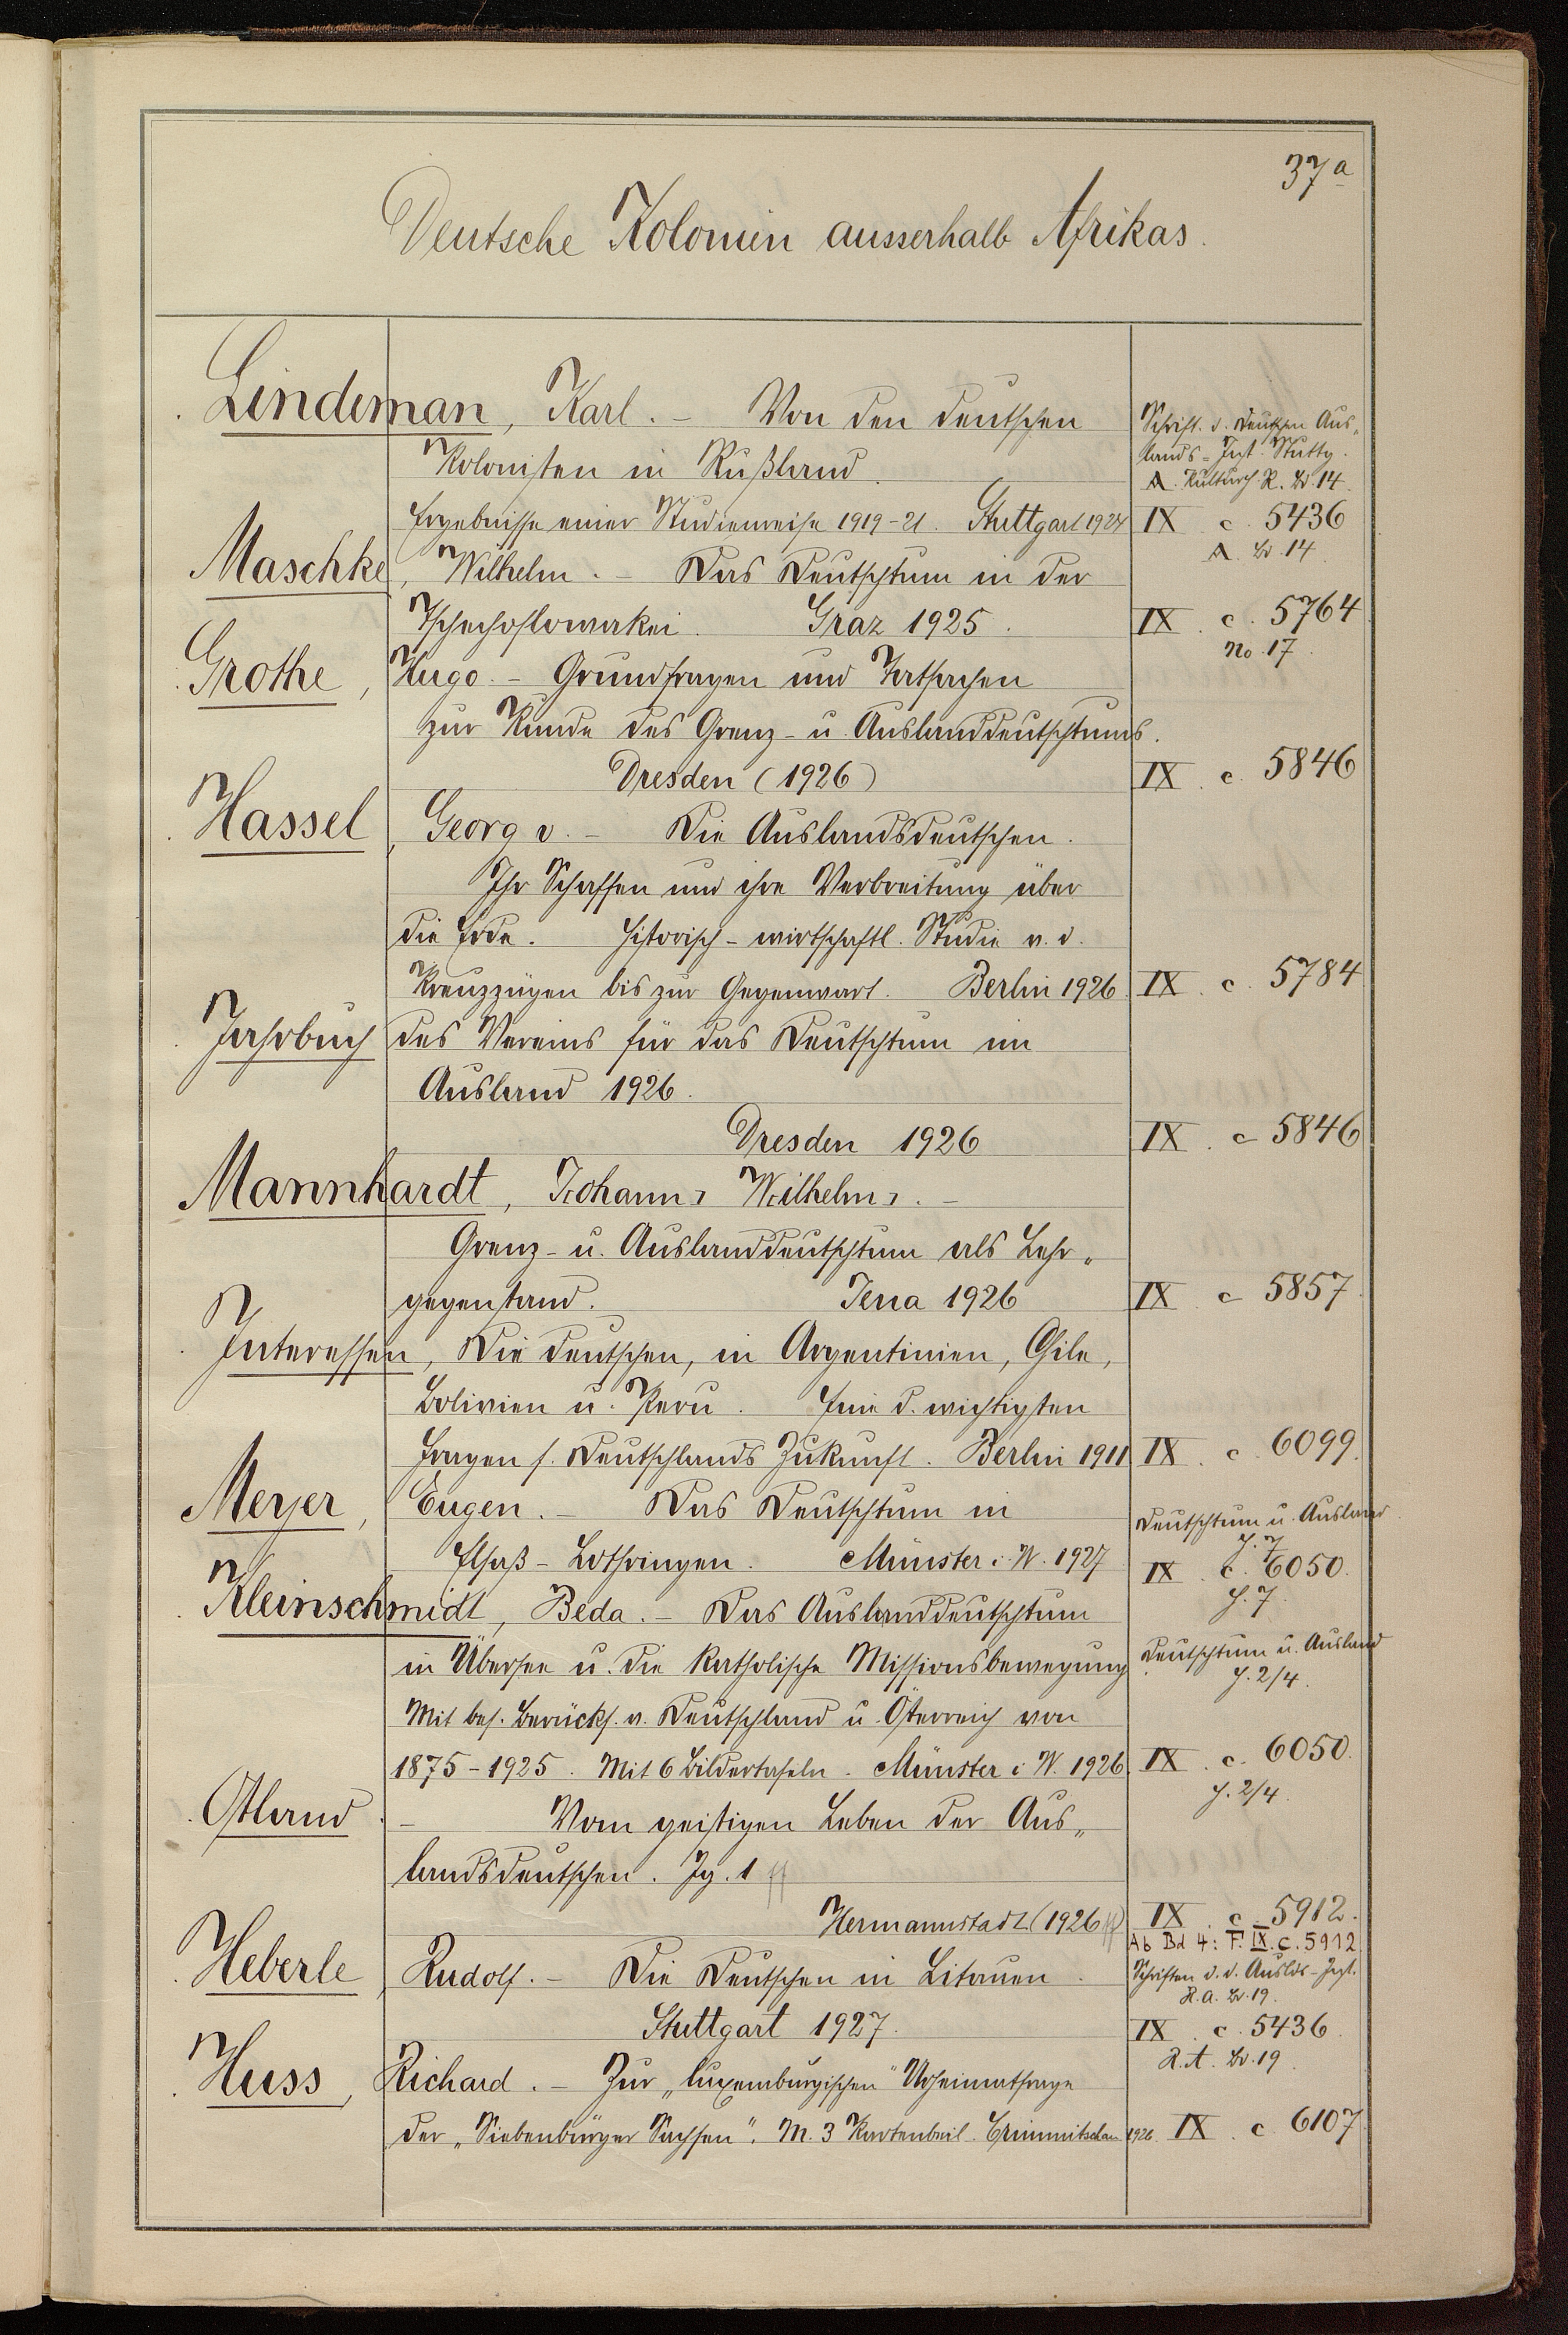 37a
Deutsche Kolonien ausserhalb Afrikas.
Lindeman, Karl. – Von den deutschen
Kolonisten in Rußland.
Schrift. d. Deutschen Aus-
lands-Inst. Stuttg.
A. Kulturh. R. Bd. 14.
Ergebnisse einer Studienreise 1919-21. Stuttgart 1924 IX c. 5436
A. Bd. 14
Maschke, Wilhelm. – Das Deutschtum in der
Tschechoslowakei. Graz 1925. IX. c. 5764
No. 17.
Grothe, Hugo. – Grundfragen und Tatsachen
zur Kunde des Grenz- u. Auslanddeutschtums.
Dresden (1926) IX. c. 5846
Hassel, Georg v. – Die Auslandsdeutschen.
Ihr Schaffen und ihre Verbreitung über
die Erde. Historisch-wirtschaftl. Studie v. d.
Kreuzzügen bis zur Gegenwart. Berlin 1926. IX. c. 5784
Jahrbuch des Vereins für das Deutschtum im
Ausland 1926.
Dresden 1926 IX. c 5846
Mannhardt, Johann, Wilhelm. –
Grenz- u. Auslanddeutschtum als Lehr-
gegenstand. Jena 1926 IX c 5857.
Interessen, Die deutschen, in Argentinien, Chile,
Bolivien u. Peru. Eine d. wichtigsten
Fragen f. Deutschlands Zukunft. Berlin 1911 IX. c. 6099.
Meyer, Eugen. – Das Deutschtum in
Deutschtum u. Ausland
H. 7
Elsaß-Lothringen. Münster i. W. 1927 IX. c. 6050.
H. 7.
Kleinschmidt, Beda. – Das Auslanddeutschtum
in Übersee u. die katholische Missionsbewegung
Deutschtum u. Ausland
H. 2/4.
Mit bes. Berücks. v. Deutschland u. Österreich von
1875-1925. Mit 6 Bildertafeln. Münster i. W. 1926. IX. c. 6050.
H. 2/4.
Ostland. – Vom geistigen Leben der Aus-
landsdeutschen. Jg. 1 ff
Hermannstadt (1926 ff) IX. c. 5912.
Ab Bd 4: F. IX. c. 5912.
Heberle, Rudolf. – Die Deutschen in Litauen.
Schriften d. d. Auslds-Inst.
R. A. Bd. 19.
Stuttgart 1927. IX. c. 5436.
R. A. Bd. 19.
Huss, Richard. – Zur „luxemburgischen" Urheimatfrage
der „Siebenbürger Sachsen". M. 3 Kartenbeil. Crimmitschau 1926. IX. c. 6107.